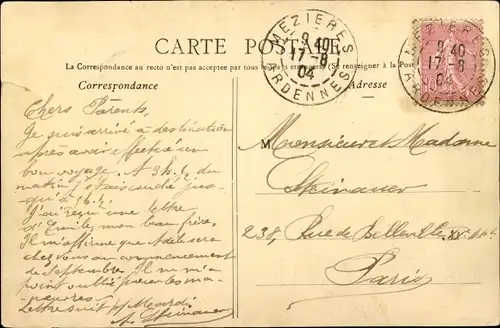 CARTE POSTALE
La Correspondance au recto n'est pas acceptée par tous les pays étrangers (Se renseigner à la Poste)
Correspondance
Adresse
MEZIERES
9 40
17-8
04
ARDENNES
MEZIERES
9 40
17-8
04
ARDENNES
Chers Parents,
Je suis arrivé à destination
après avoir effectué un
bon voyage. A 3h ½ du
matin j'étais couché jus-
qu'à 5h ½.
J'ai reçu une lettre
d'Emile, mon beau frère.
Il m'affirme que sera
chez vous au commencement
de Septembre. Il ne m'a
point oublié pour les ma-
nœuvres.
Lettre suit Mardi
A. Steinauer
M Monsieur et Madame
Steinauer
238, Rue de Belleville XXe Arrt
Paris